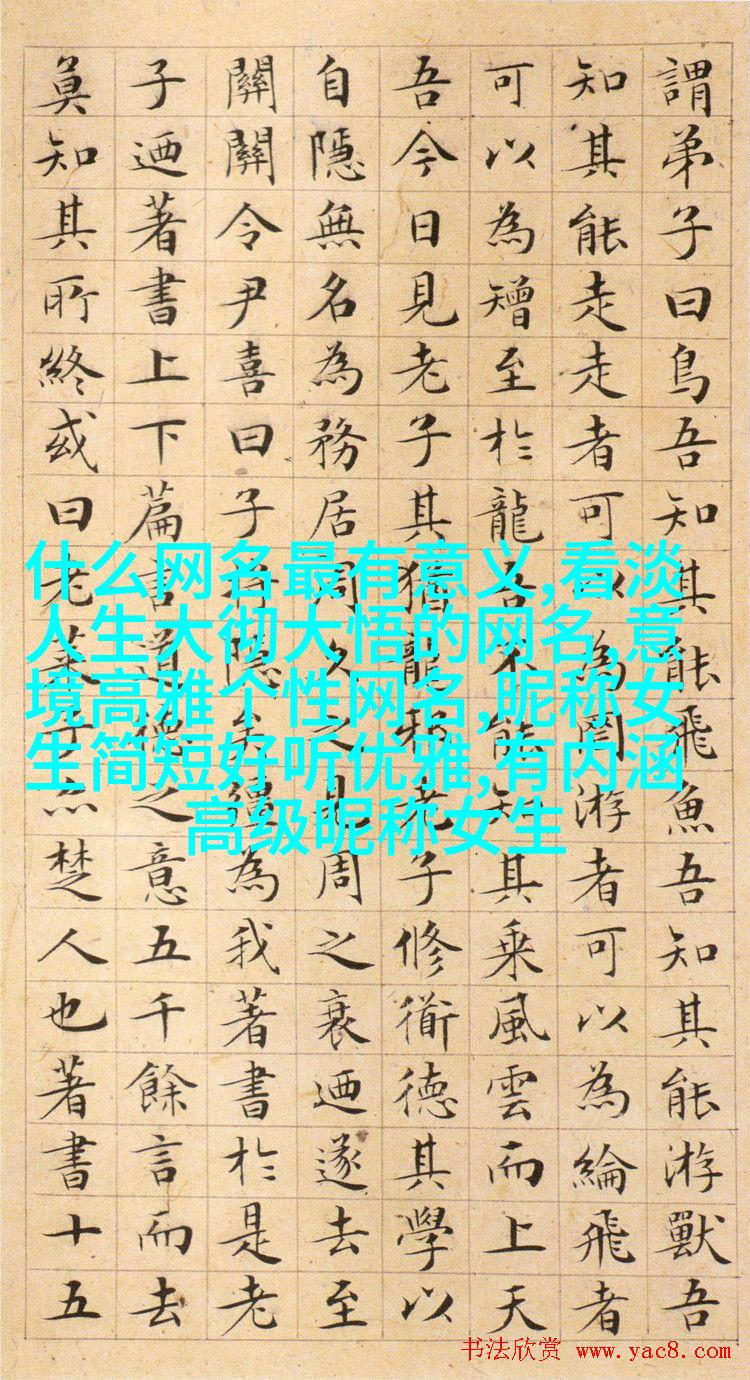 謂弟子曰鳥吾知其能飛魚吾知其能游獸吾
知其能走走者可以為罔游者可以為綸飛者
可以為矰至於龍吾不能知其乘風雲而上天
吾今日見老子其猶龍邪老子修衟德其學以
自隱無名為務居周久之見周之衰迺遂去至
關關令尹喜曰子將隱矣彊為我著書於是老
子迺著書上下篇言道德之意五千餘言而去
莫知其所終或曰老萊子亦楚人也著書十五
什么网名最有意义,看淡
人生大彻大悟的网名,意
境高雅个性网名,昵称女
生简短好听优雅,有内涵
高级昵称女生
书法欣赏 www.yac8.com